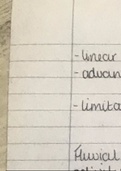 - linear
- advan
- limita
Fluvial